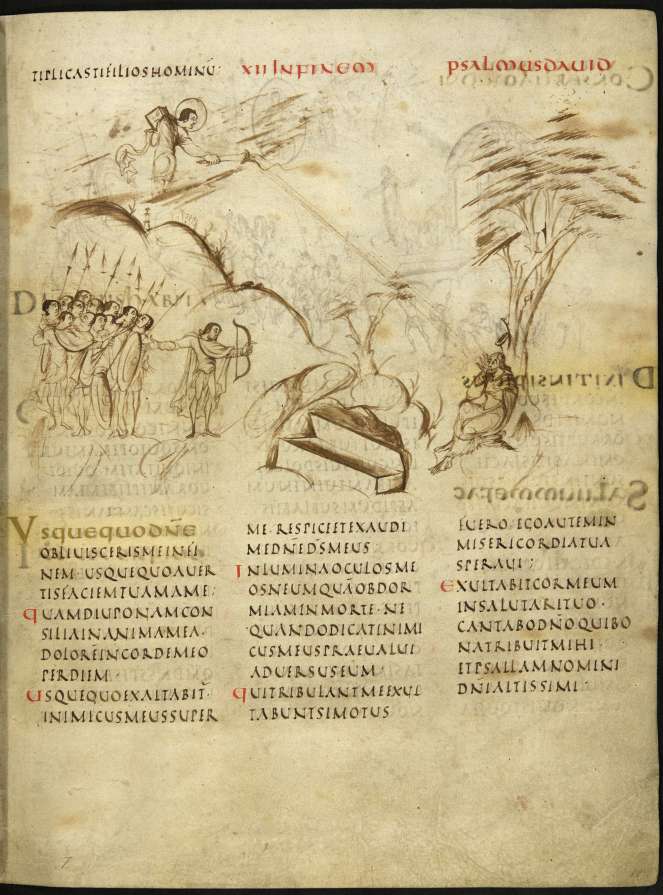 TIPLICASTIFILIOSHOMINŪ·
XII INFINEM
PSALMUSDAUID
USQUEQUODÑE
OBLIUISCERISMEINFI
NEM·USQUEQUOAUER
TISFACIEMTUAMAME·
QUAMDIUPONAMCON
SILIAINANIMAMEA·
DOLORĒINCORDEMEO
PERDIEM·
USQUEQUOEXALTABIT̄·
INIMICUSMEUSSUPER
ME·RESPICEETEXAUDI
MEDN̄ED̄SMEUS
INLUMINAOCULOSME
OSNEUMQUĀOBDOR
MIAMINMORTE·NE
QUANDODICATINIMI
CUSMEUSPRAEUALUI
ADUERSUSEUM·
QUITRIBULANTMEEXUL
TABUNTSIMOTUS
FUERO·EGOAUTEMIN
MISERICORDIATUA
SPERAUI·
EXULTABITCORMEUM
INSALUTARITUO·
CANTABODNOQUIBO
NATRIBUITMIHI·
ETPSALLAMNOMINI
DNIALTISSIMI·